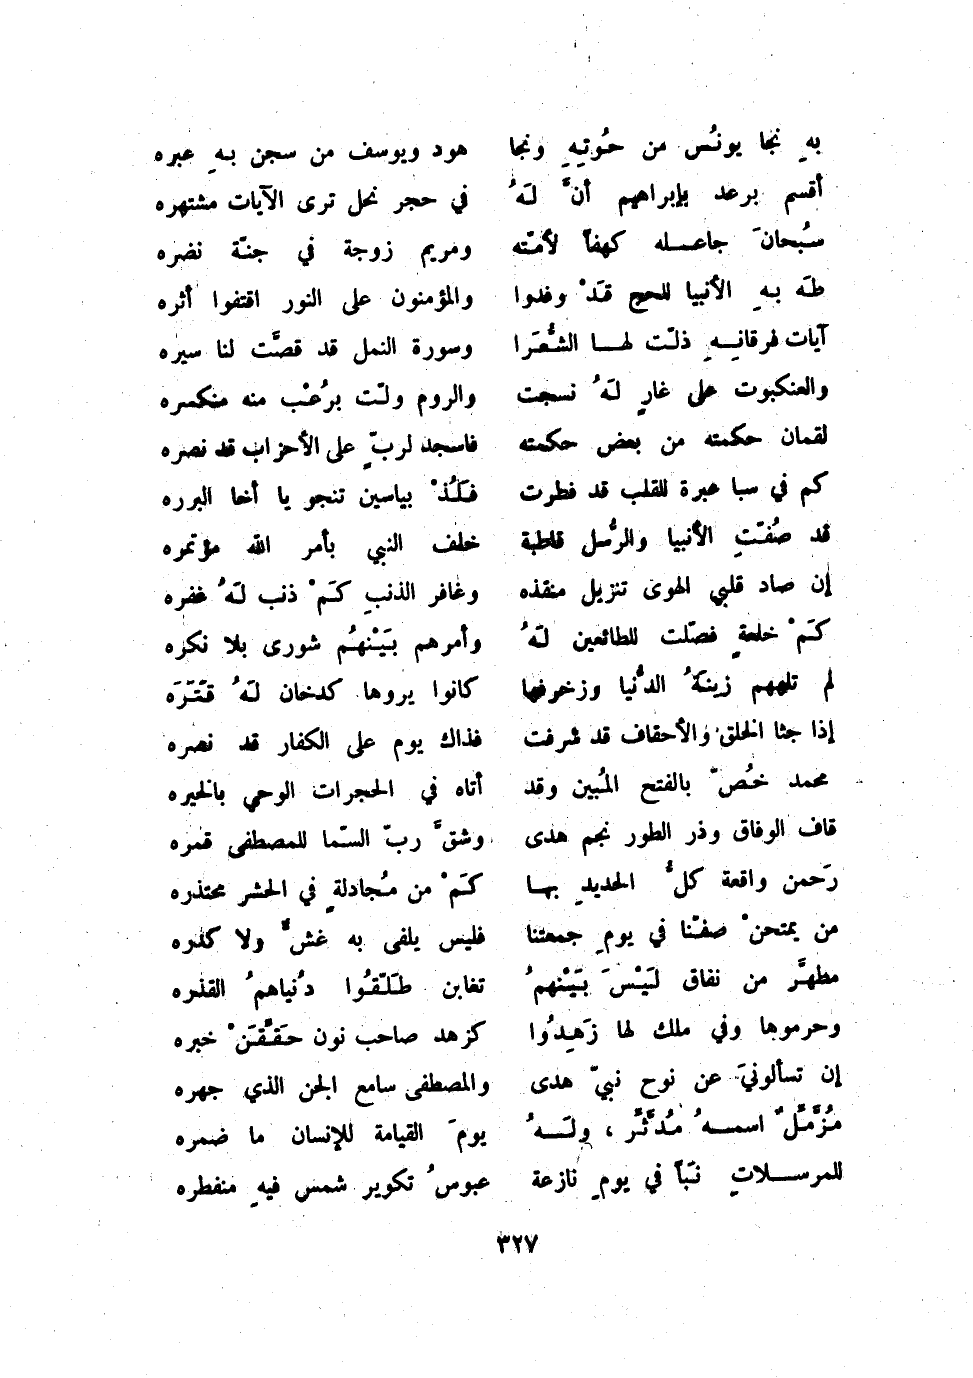 بهِ نجا يونُس من حُوتهِ ونجا هود ويوسف من سجن بهِ عبره
أقسم برعد بإبراهيم أنَّ لهُ في حجر نحل ترى الآيات مشتهره
سُبحانَ جاعله كهفاً لأمّته ومريم زوجة في جنّة نضره
طَه بهِ الأنبيا للحج قَدْ وفدوا والمؤمنون على النور اقتفوا أثره
آيات فرقانهِ ذلّت لها الشُّعَرا وسورة النمل قد قصَّت لنا سيره
والعنكبوت على غارٍ لَهُ نسجت والروم ولّت برُعْب منه منكسره
لقمان حكمته من بعض حكمته فاسجد لربٍّ على الأحزاب قد نصره
كم في سبا عبرة للقلب قد فطرت فَلُذْ بياسين تنجو يا أخا البرره
قد صُفّتِ الأنبيا والرُّسل قاطبة خلف النبي بأمر الله مؤتمره
إن صاد قلبي الهوى تنزيل منقذه وغافر الذنبِ كَمْ ذنب لَهُ غفره
كَمْ خلعةٍ فصّلت للطائعين لَهُ وأمرهم بَيْنهُم شورى بلا نكره
لم تلههم زينةُ الدُّنيا وزخرفها كانوا يروها كدخان لَهُ قَتَرَه
إذا جثا الخلق والأحقاف قد شرفت فذاك يوم على الكفار قد نصره
محمد خُصّ بالفتح المُبين وقد أتاه في الحجرات الوحي بالخيره
قاف الوفاق وذر الطور نجم هدى وشقَّ ربّ السّما للمصطفى قمره
رَحمن واقعة كلُّ الحديدِ بها كَمْ من مُجادلةٍ في الحشر محتذره
من يمتحنْ صفّنا في يومِ جمعتنا فليس يلفى به غشٌّ ولا كدره
مطهَّر من نفاق لَيْسَ بَيْنهمُ تغابن طَلّقُوا دُنياهمُ القذره
وحرموها وفي ملك لها زَهِدُوا كزهد صاحب نون حَقَّقَنْ خبره
إن تسألونيَ عن نوح نبيّ هدى والمصطفى سامع الجن الذي جهره
مُزَّمِّلٌ اسمهُ مُدَّثَّر ، ولَهُ يومَ القيامة للإنسان ما ضمره
للمرسلاتِ نبّاً في يومِ نازعة عبوسُ تكوير شمس فيهِ منفطره
٣٢٧